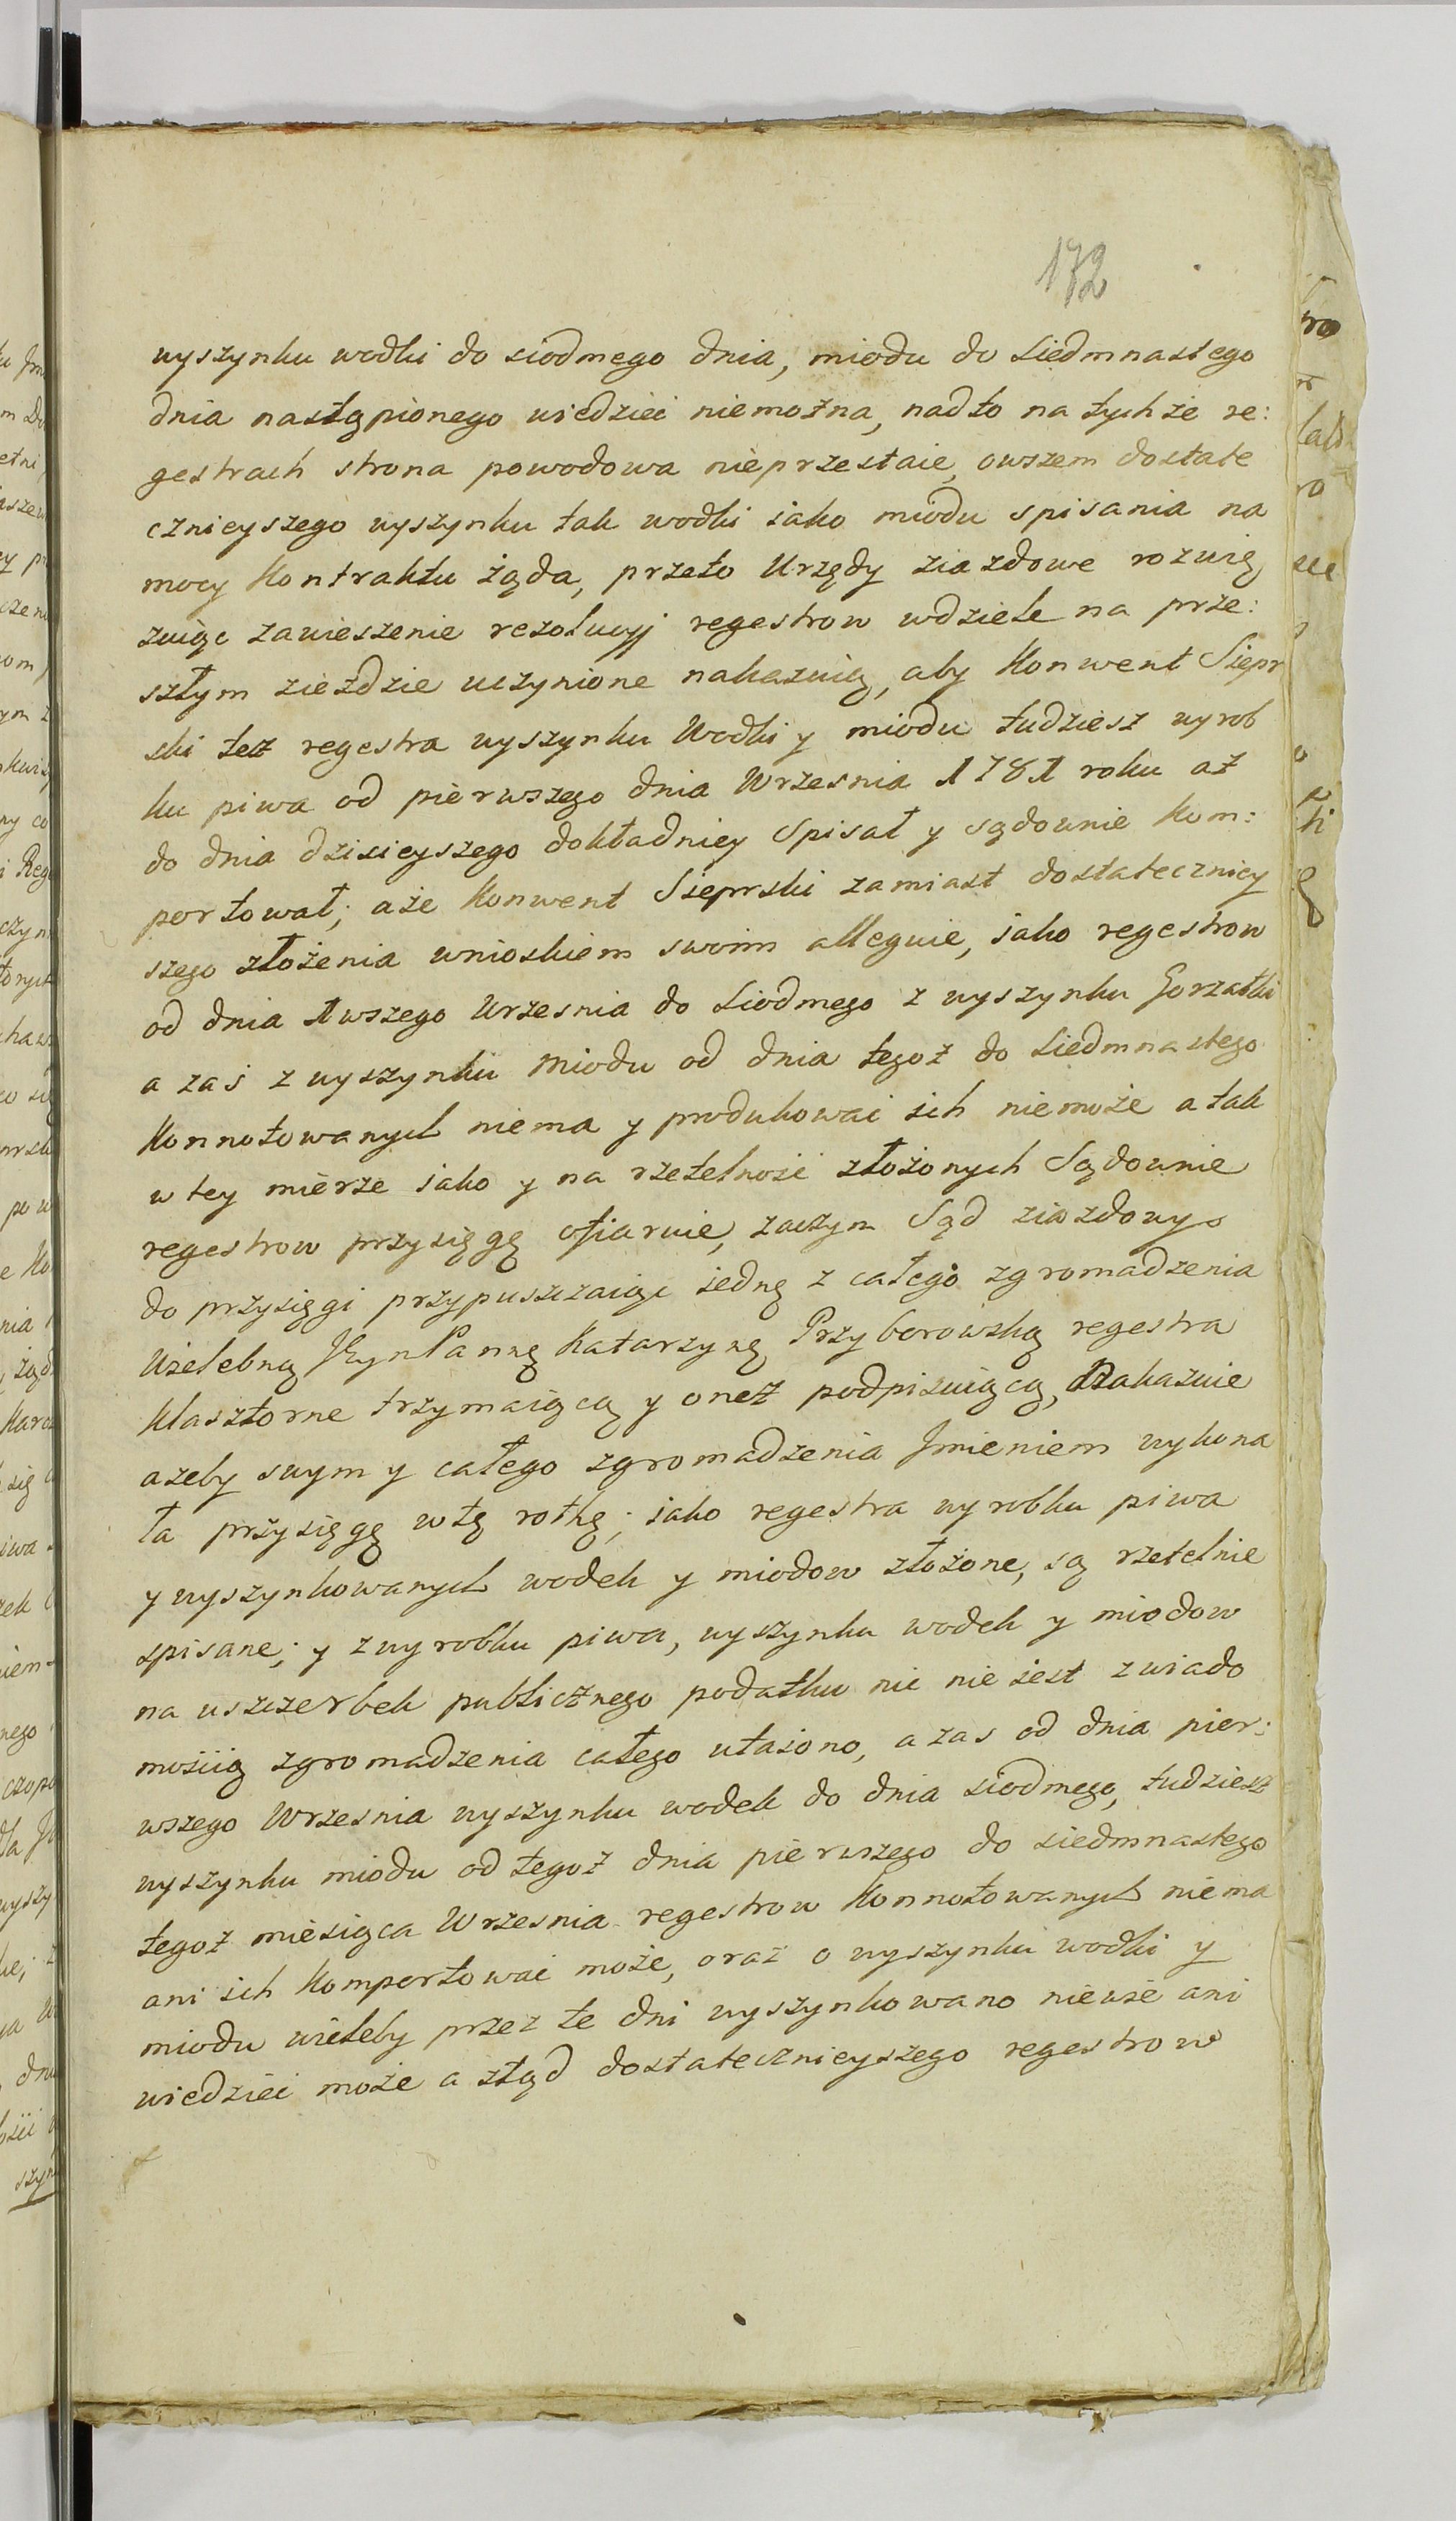 172
wyszynku wodki do siodmego dnia, miodu do Siedmnastego
dnia nastąpionego wiedzieć niemożna, nadto na tychże re:
gestrach strona powodowa nieprzestaie, owszem dostate
cznieyszego wyszynku tak wodki iako miodu spisania na
mocy Kontraktu żąda, przeto Urzędy ziazdowe rozwią
zuiąc zawieszenie rezolucyj regestrow wdziele na prze:
szłym zieździe uczynione nakazuią, aby Konwent Siepr
ski też regestra wyszynku Wodki y miodu tudziesz wyrob
ku piwa od pierwszego dnia Wrzesnia 1781 roku aż
do dnia dzisieyszego dokładniey Spisał y sądownie kom:
portował; aże Konwent Sieprski zamiast dostateczniey
szego złożenia wnioskiem swoim alleguie, iako regestrow
od dnia 1wszego Wrzesnia do Siodmego z wyszynku Gorzałki
a zaś z wyszynku Miodu od dnia tegoż do Siedmnastego
Konnotowanych niema y produkowai ich niemoże a tak
w tey mierze iako y na rzetelność złożonych Sądownie
regestrow przysięgę ofiaruie, zaczym Sąd ziazdowy
do przysięgi przypuszczaiąc iedną z całego zgromadzenia
Wielebną JEynPannę Katarzynę Przyborowską regestra
klasztorne trzymaiącą y oneż podpisuiącą, Nakazuie
azeby swym y całego zgromadzenia Jmieniem wykona
ła przysięgę wtę rothę; iako regestra wyrobku piwa
y wyszynkowanych wodek y miodow złożone, są rzetelnie
spisane; y z wyrobku piwa, wyszynku wodek y miodow
na uszczerbek publicznego podatku nic nie iest z wiado
mością zgromadzenia całego utaiono, a zas od dnia pier:
wszego Wrzesnia wyszynku wodek do dnia siodmego, tudziesz
wyszynku miodu od tegoż dnia pierwszego do siedmnastego
tegoż miesiąca Wrzesnia regestrow Konnotowanych niema
ani ich Komportować może, oraz o wyszynku wodki y
miodu wieleby przez te dni wyszynkowano niewie ani
wiedzieć może a ztąd dostatecznieyszego regestrow